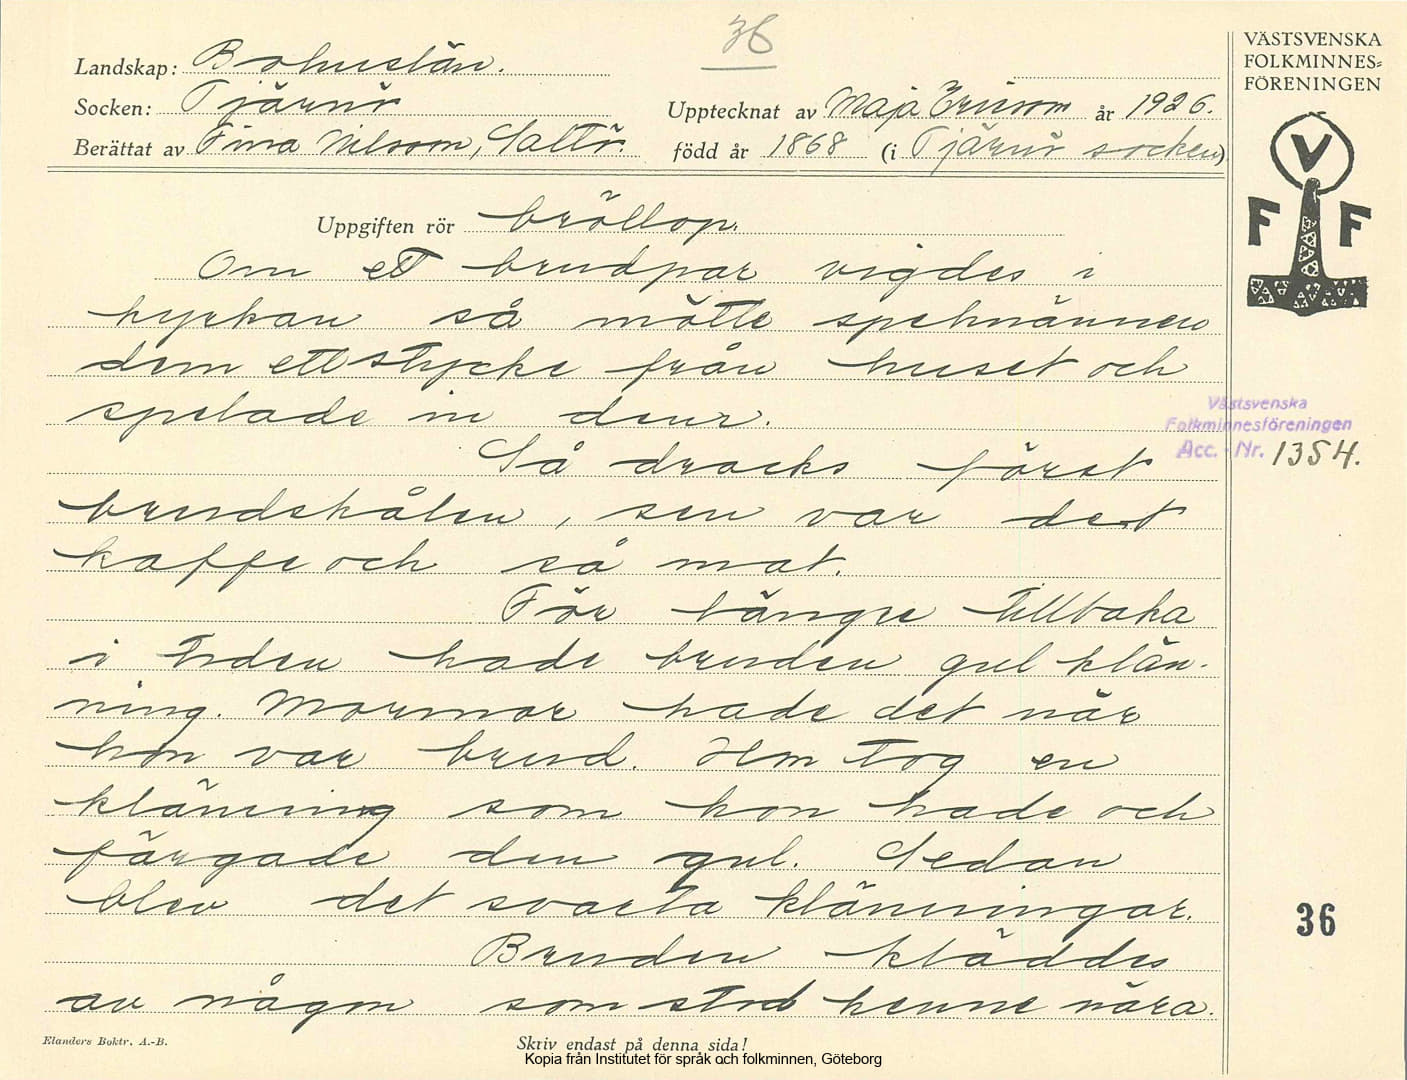 36
VÄSTSVENSKA
FOLKMINNES=
FÖRENINGEN
Landskap: Bohuslän.
Socken: Tjärnö
Upptecknat av Maja Ericson år 1926.
Berättat av Fina Nilsson, Saltö.
född år 1868 (i Tjärnö socken)
V
F F
Uppgiften rör bröllop.
Om ett brudpar vigdes i
kyrkan så mötte spelmännen
dem ett stycke från huset och
spelade in dem.
Så dracks först
brudskålen, sen var det
kaffe och så mat.
För längre tillbaka
i tiden hade bruden gul klän-
ning. Mormor hade det när
hon var brud. Hon tog en
klänning som hon hade och
färgade den gul. Sedan
blev det svarta klänningar.
Bruden kläddes
av någon som stod henne nära.
Västsvenska
Folkminnesföreningen
Acc. - Nr. 1354.
36
Elanders Boktr. A.-B.
Skriv endast på denna sida!
Kopia från Institutet för språk och folkminnen, Göteborg